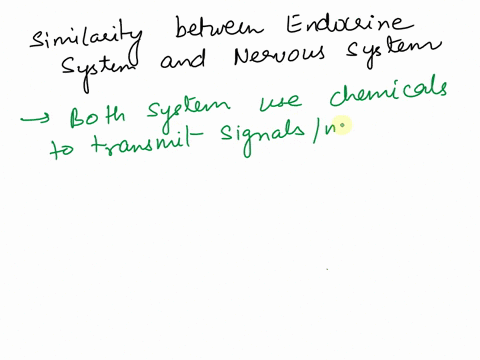 Similarity between Endocrine
System and Nervous System
→ Both system use chemicals
to transmit signals/